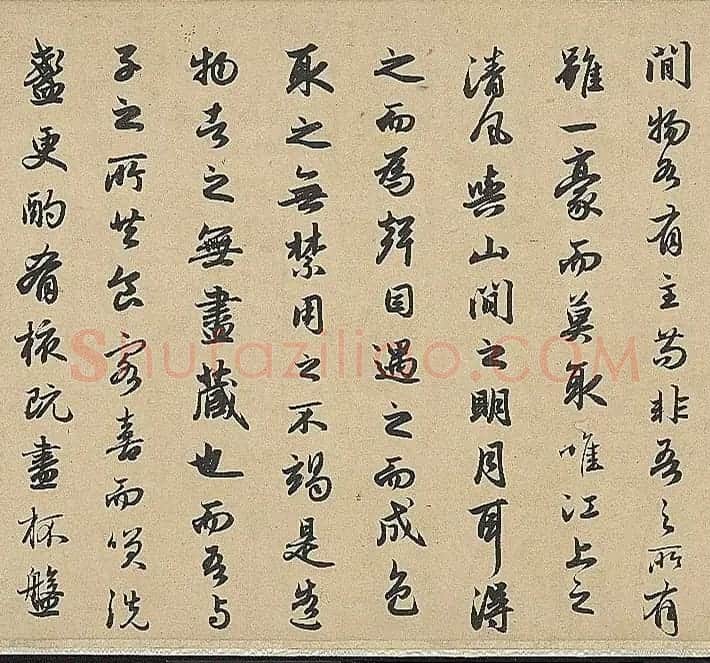 間物各有主苟非吾之所有
雖一豪而莫取惟江上之
清風與山間之明月耳得
之而為聲目遇之而成色
取之無禁用之不竭是造
物者之無盡藏也而吾与
子之所共食客喜而笑洗
盞更酌肴核既盡杯盤
Shufaziliao.COM